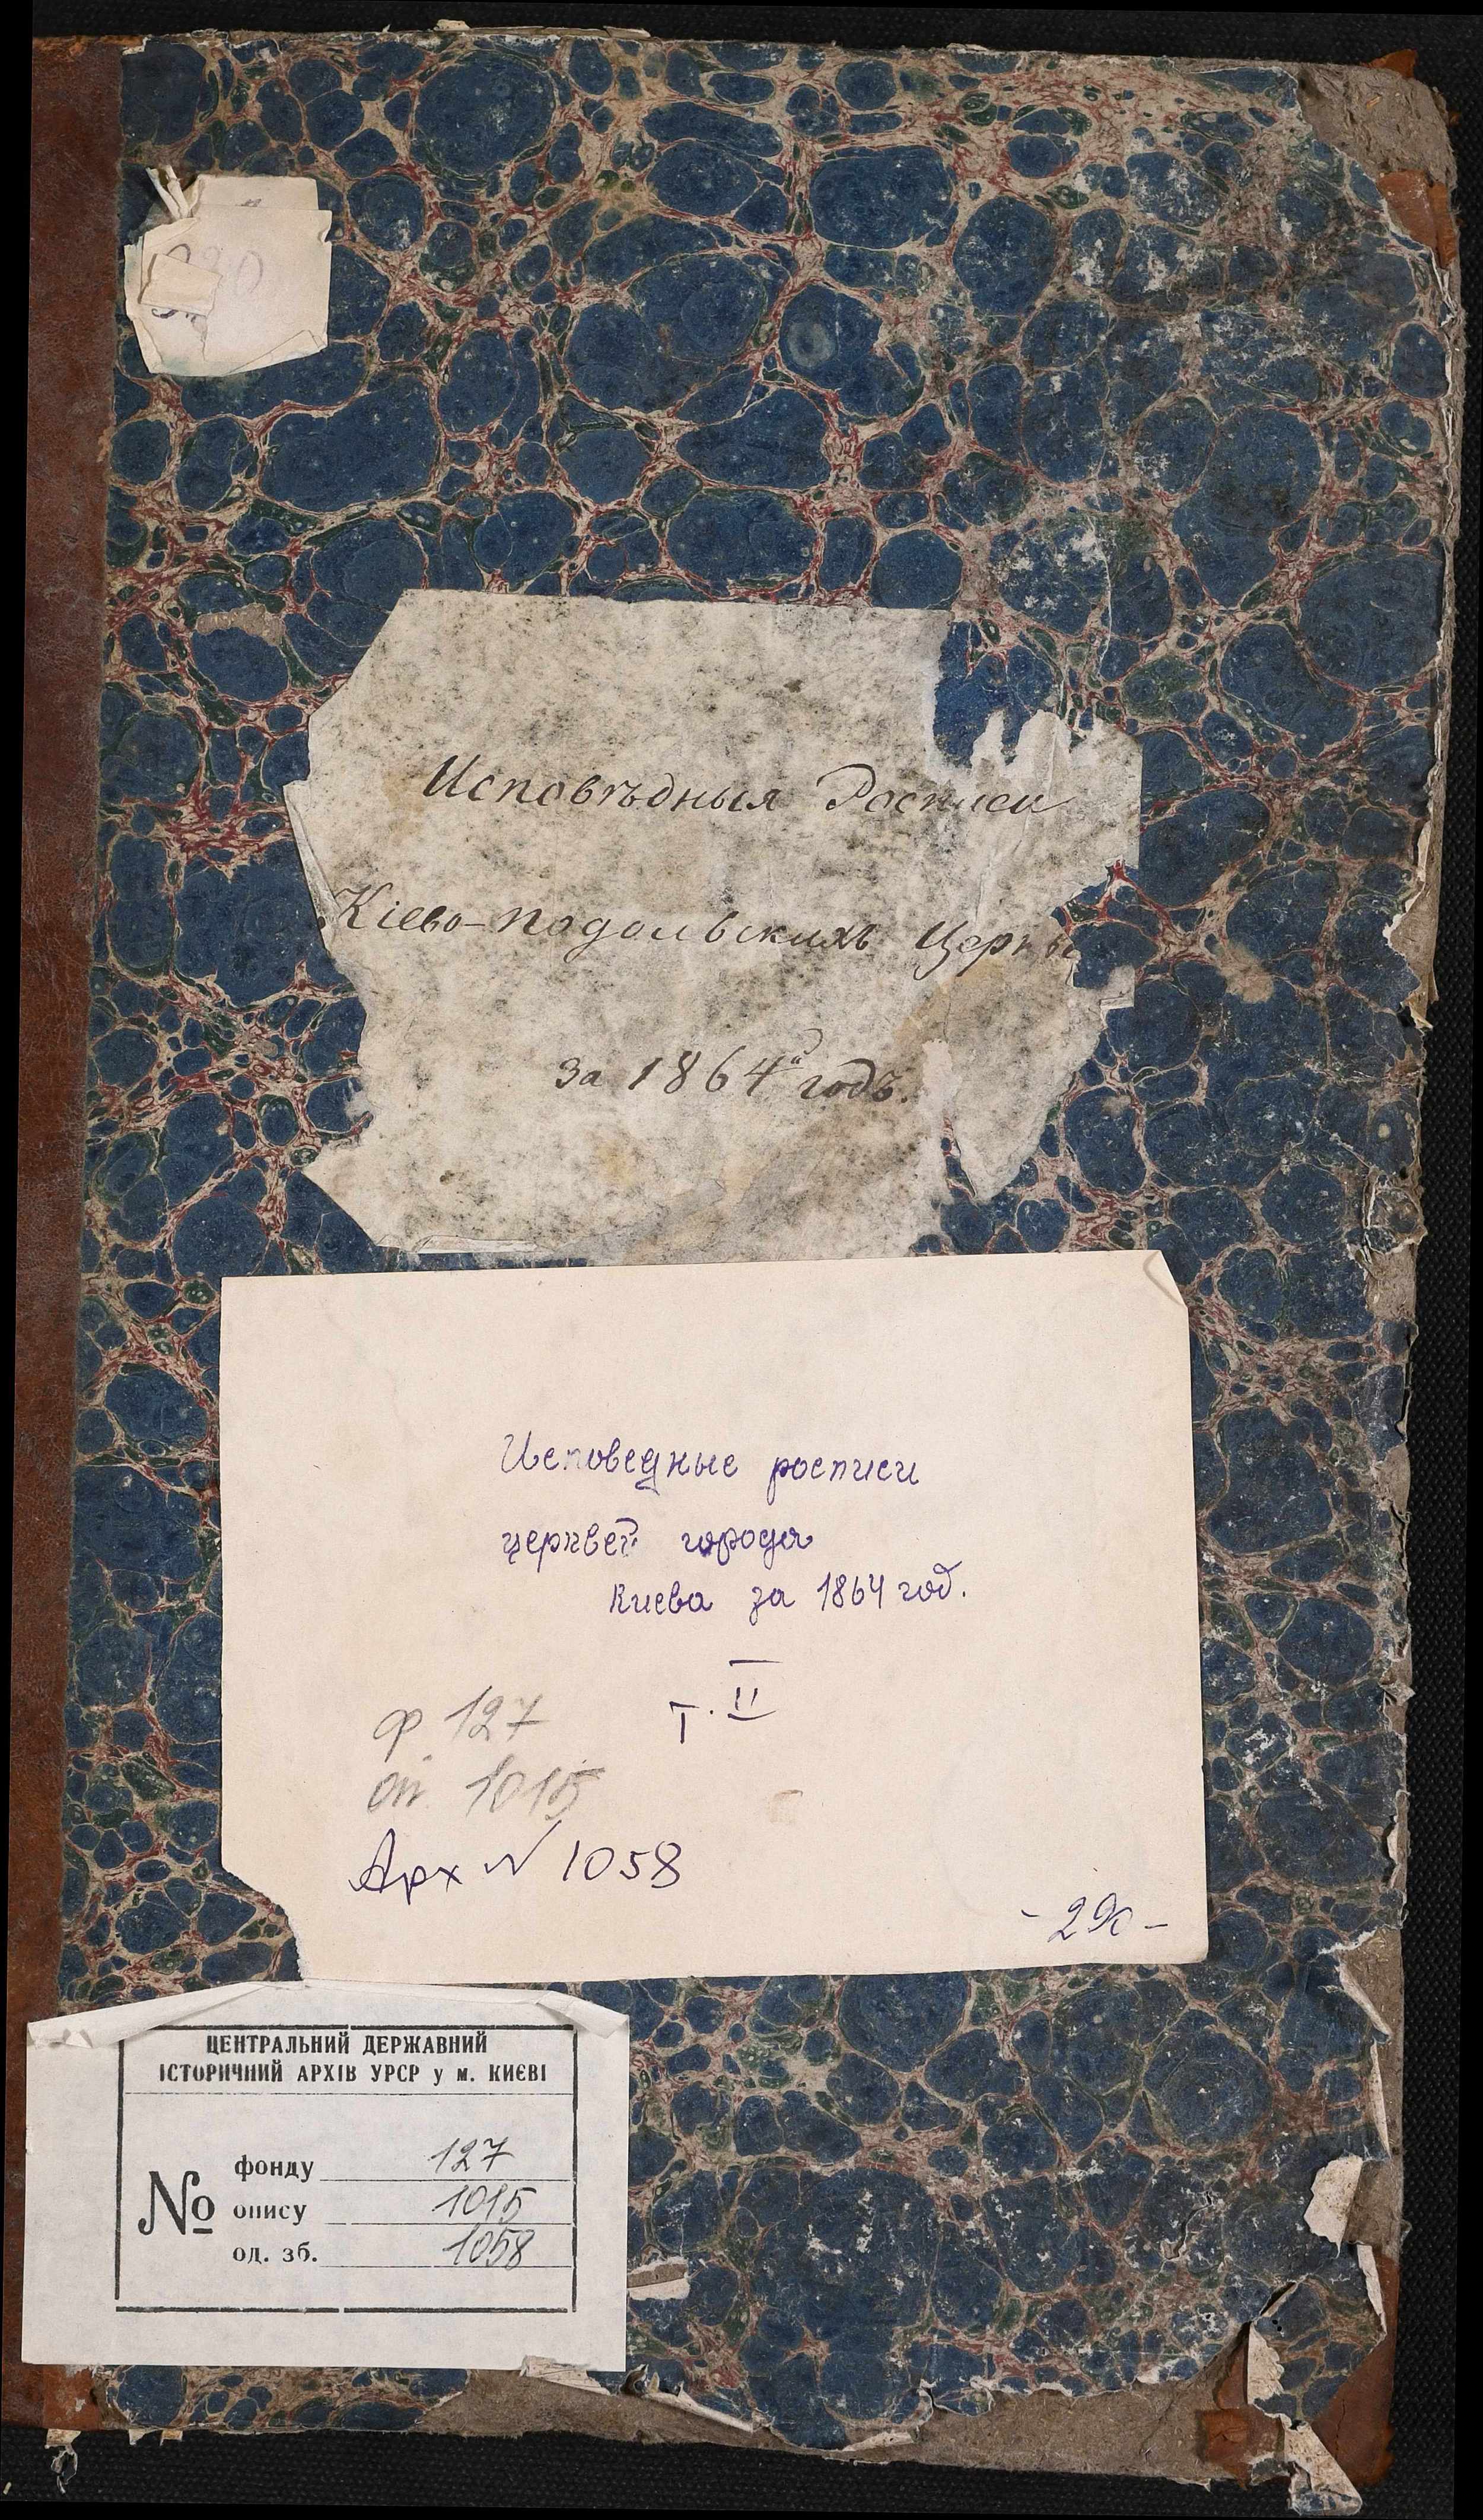 Исповѣдныя Росписи
Кіево-подольскихъ Церкве
за 1864й годъ.
Исповедные росписи
церквей города
Киева за 1864 год.
Т. II
ф. 127
оп. 1015
Арх № 1058
- 290 -
ЦЕНТРАЛЬНИЙ ДЕРЖАВНИЙ
ІСТОРИЧНИЙ АРХІВ УРСР у м. КИЄВІ
№
фонду 127
опису 1015
од. зб. 1058